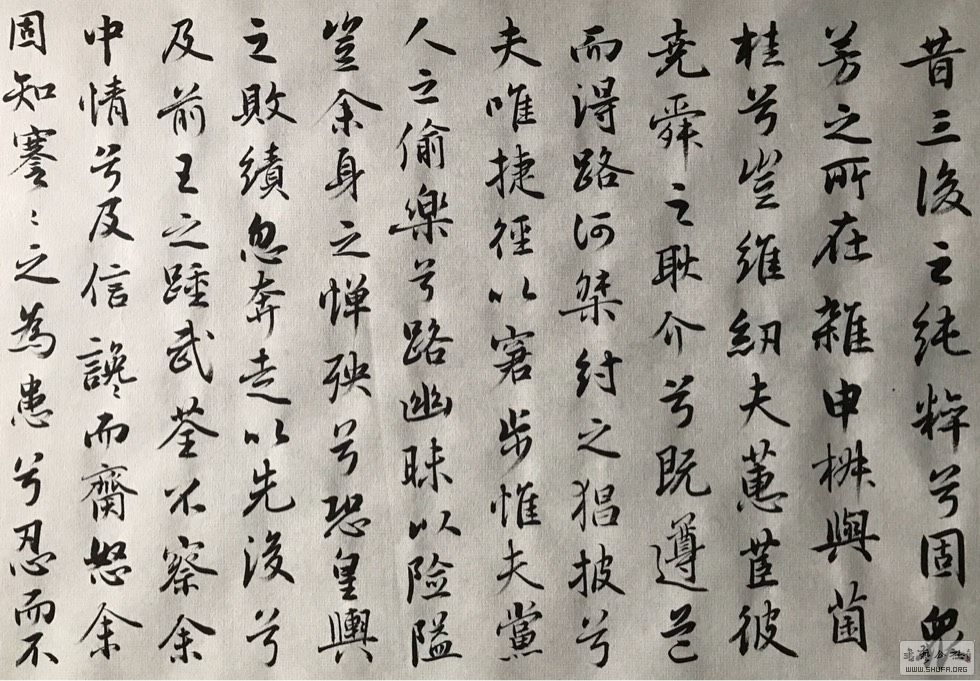 昔三後之純粹兮固眾
芳之所在雜申椒與菌
桂兮豈維紉夫蕙茝彼
堯舜之耿介兮既遵道
而得路何桀紂之猖披兮
夫唯捷徑以窘步惟夫黨
人之偷樂兮路幽昧以险隘
豈余身之惮殃兮恐皇輿
之敗績忽奔走以先後兮
及前王之踵武荃不察余
中情兮及信讒而齌怒余
固知謇〻之為患兮忍而不
WWW.SHUFA.ORG